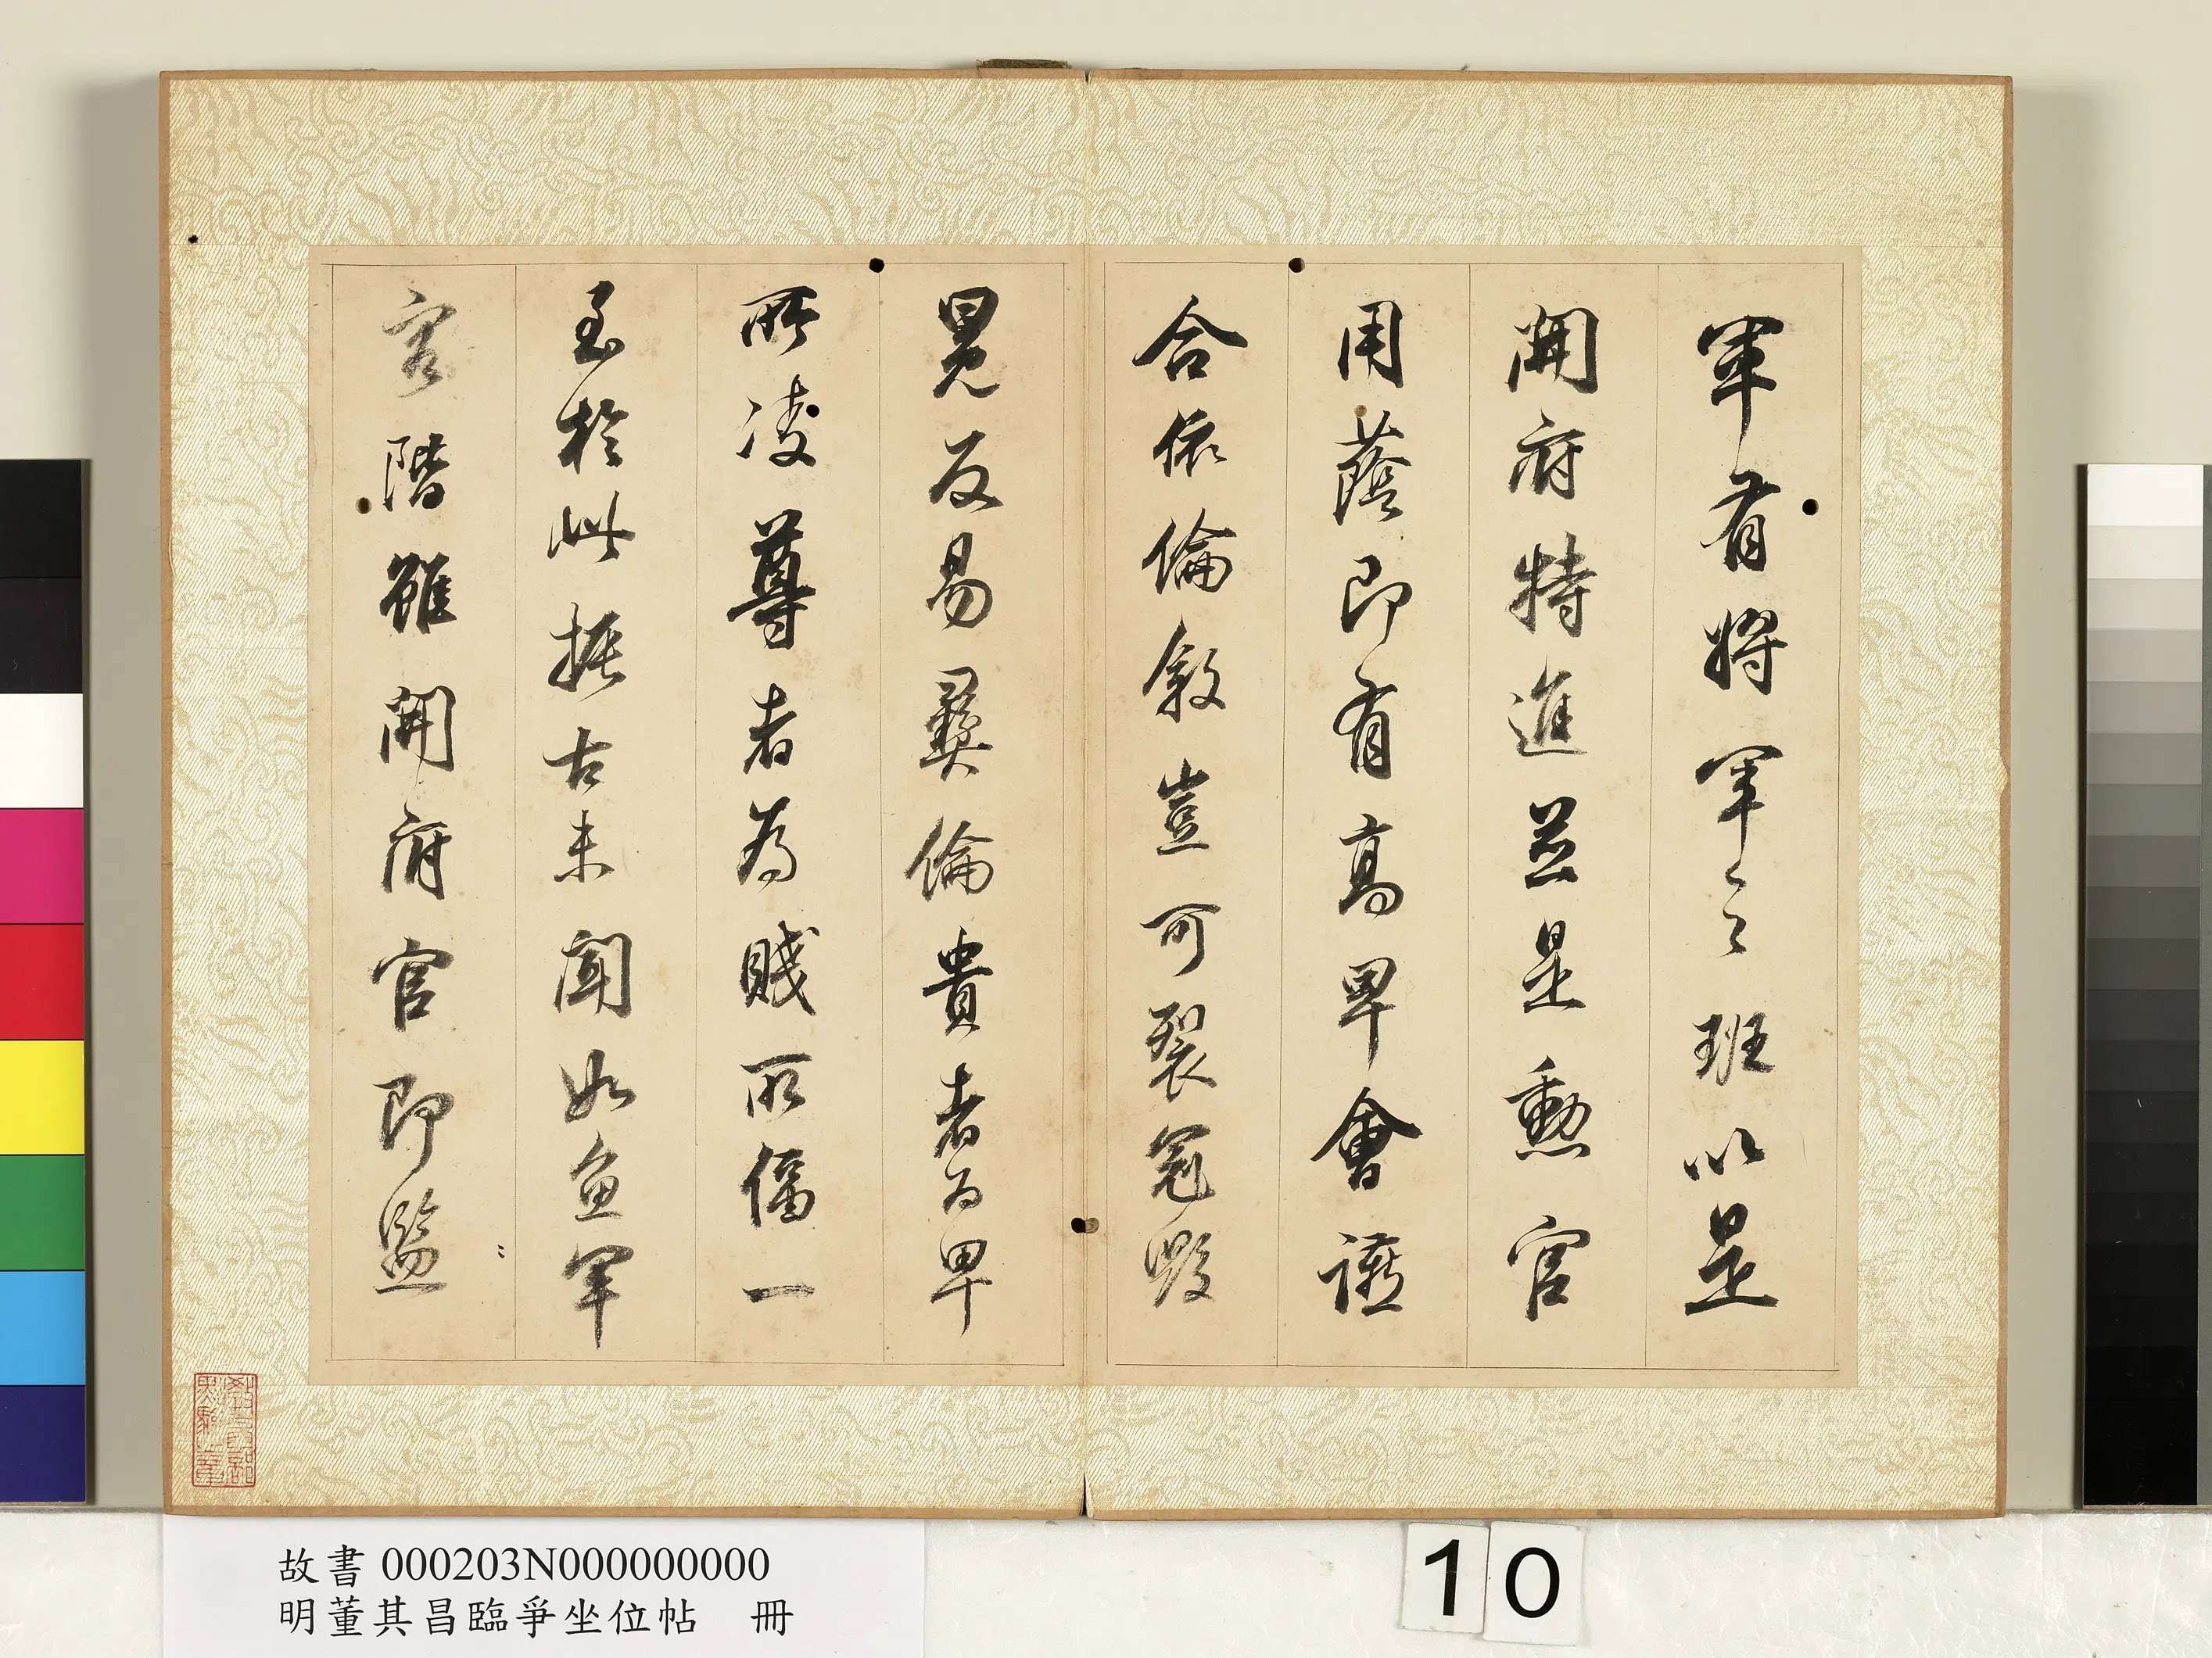 軍有將軍之班以是
開府特進並是勳官
用蔭即有高卑會讌
合依倫敘豈可裂冠毀
冕反易彝倫貴者為卑
所凌尊者為賤所偪一
至於此振古未聞如魚軍
容階雖開府官即監
故書 000203N000000000
明董其昌臨爭坐位帖 冊
10